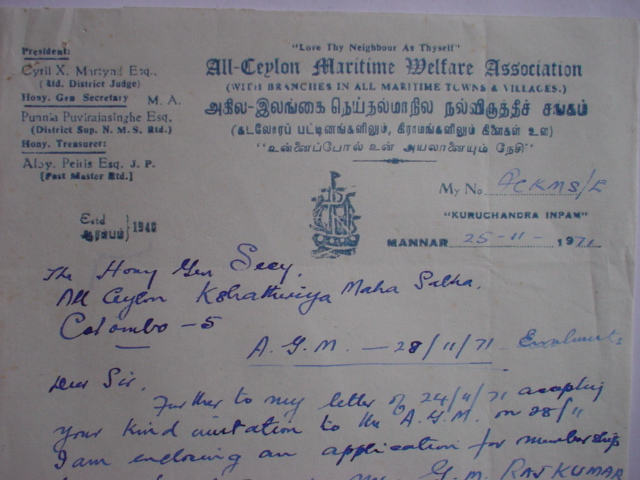 "Love Thy Neighbour As Thyself"
All-Ceylon Maritime Welfare Association
(WITH BRANCHES IN ALL MARITIME TOWNS & VILLAGES.)
அகில-இலங்கை நெய்தல்மாநில நல்விருத்திச் சங்கம்
(கடலோரப் பட்டினங்களிலும், கிராமங்களிலும் கிளைகள் உள)
"உன்னைப்போல் உன் அயலானையும் நேசி"
President:
Cyril X. Martynd Esq.,
(Rtd. District Judge)
Hony. Gen Secretary M. A.
Punnia Puvirajasinghe Esq.
(District Sup. N. M. S. Rtd.)
Hony. Treasurer:
Aloy. Peiris Esq. J. P.
[Post Master Rtd.]
Estd
ஆரம்பம் } 1940
My No ACKMS/E
"KURUCHANDRA INPAM"
MANNAR 25-11-1971
The Hony Gen Secy.
All Ceylon Kshathriya Maha Sabha.
Colombo - 5
A.G.M. - 28/11/71
Dear Sir.
Further to my letter of 24/11/71 accepting
your kind invitation to the A.G.M. on 28/11
I am enclosing an application for membership
G.M. RAJKUMAR